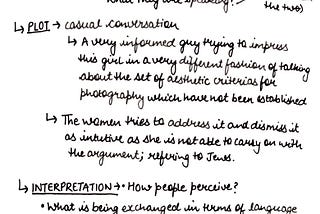 what they are speaking?
the two)
↳ PLOT → casual conversation
↳ A very informed guy trying to impress
this girl in a very different fashion of talking
about the set of aesthetic criterias for
photography which have not been established
↳ The women tries to address it and dismiss it
as intutive as she is not able to carry on with
the argument; refering to Jews.
↳ INTERPRETATION → • How people perceive?
• What is being exchanged in terms of language